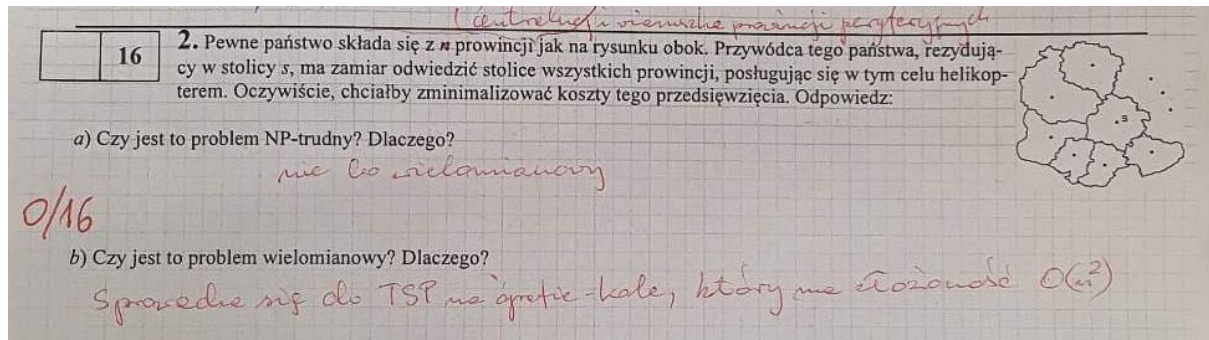 (centralnej i wierzchołki prowincji peryferyjnych
16
2. Pewne państwo składa się z n prowincji jak na rysunku obok. Przywódca tego państwa, rezydują-
cy w stolicy s, ma zamiar odwiedzić stolice wszystkich prowincji, posługując się w tym celu helikop-
terem. Oczywiście, chciałby zminimalizować koszty tego przedsięwzięcia. Odpowiedz:
s
a) Czy jest to problem NP-trudny? Dlaczego?
nie bo wielomianowy
0/16
b) Czy jest to problem wielomianowy? Dlaczego?
Sprowadza się do TSP na grafie-kole, który ma złożoność O(n²)